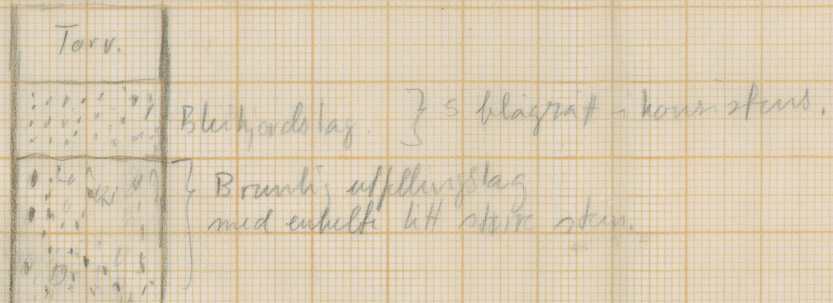 Torv.
Bleikjordslag. } s blågrått i konsistens.
Brunlig utfellingslag
med enkelte litt større stein.